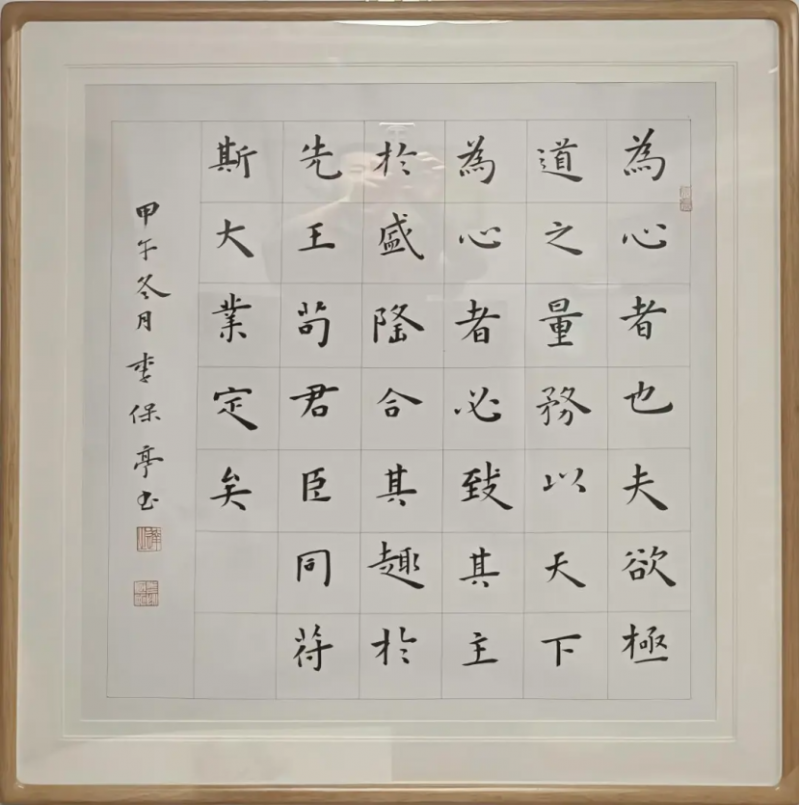 為心者也夫欲極
道之量務以天下
為心者必致其主
於盛隆合其趣於
先王苟君臣同符
斯大業定矣
甲午冬月李保亭书